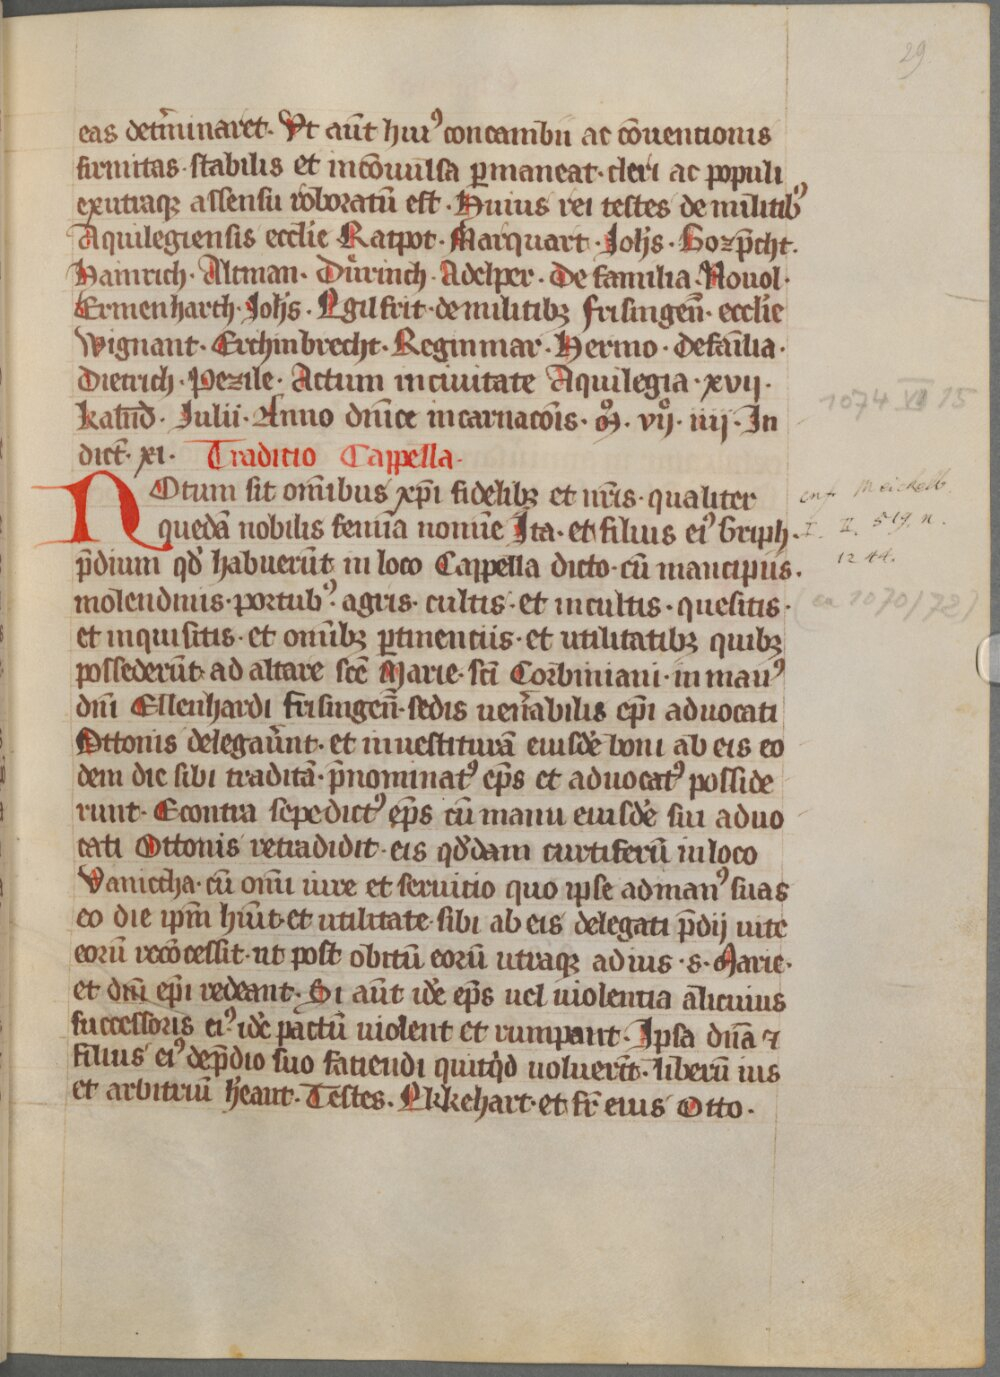 29
eas det̃minaret. Vt aũt huiꝰ concambii ac cõuentionis
firmitas. stabilis et incõuulsa ꝑmaneat. cleri ac populi
exutraqꝫ assensu roboratũ est. Huius rei testes de militibꝰ
Aquilegiensis eccłie Ratpot. Marquart. Joħs. Gozp̃cht.
Hainrich. Altman. Důrinch. Adelper. De familia. Nouol.
Ermenharth. Joħs. Egilfrit. de militibꝫ frisingeñ. eccłie
Wignant. Erchinbrecht. Reginmar. Hermo. defam̃lia.
Dietrich. Pezile. Actum in ciuitate Aquilegia. xvij.
kalend̃. Julii. Anno dñice incarnacõis. mͦ. vijͦ. iiij. In
dict̃. xi. Traditio Cappella.
NOtum sit om̃ibus xp̃i fidelibꝫ et nr̃is. qualiter
quedã nobilis femĩa nomĩe Ita. et filius eiꝰ Griph.
p̃dium qd̃ habuerũt in loco Cappella dicto. cũ mancipiis.
molendinis. portubꝰ. agris. cultis. et incultis. quesitis.
et inquisitis. et om̃ibꝫ ꝑtinenciis. et utilitatibꝫ quibꝫ
possederũt. ad altare sc̃e Marie. sc̃i Corbiniani. in manꝰ
dñi Ellenhardi frisingeñ. sedis uen̾abilis ep̃i aduocati
Ottonis delegaũnt. et inuestiturã eiusdẽ boni ab eis eo
dem die sibi traditã. p̃nominatꝰ ep̃s et aduocatꝰ posside
runt. Econtra sepedictꝰ ep̃s cũ manu eiusdẽ sui aduo
cati Ottonis retradidit. eis qd̃dam curtiferũ in loco
Vaniccha. cũ om̃i iure et seruitio quo ipse ad manꝰ suas
eo die ip̃m hũit. et utilitate. sibi ab eis delegati p̃dij uite
eorũ recõcessit. ut post obitũ eorũ utraqꝫ ad ius. s. Marie.
et dñi ep̃i redeant. Si aũt idẽ ep̃s uel uiolentia alicuius
successoris eiꝰ. idẽ pactũ uiolent et rumpant. Ipsa dña ⁊
filius eiꝰ de p̃dio suo faciendi quitqd̃ uoluerĩt. liberũ ius
et arbitriũ hẽant. Testes. Ekkehart. et fr̃ eius Otto.
1074 VI 15
cnf. Meichelb.
I. II. 519. n.
1244.
(ca 1070/72)